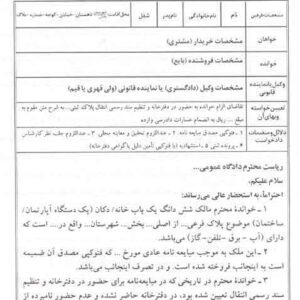 مشخصات طرفین نام نام خانوادگی نام پدر شغل محل اقامت شهرستان - خیابان - کوچه - شماره - پلاک
خواهان مشخصات خریدار (مشتری)
خوانده مشخصات فروشنده (بایع)
وکیل یا نماینده قانونی مشخصات وکیل (دادگستری) یا نماینده قانونی (ولی قهری یا قیم)
تعیین خواسته و بهای آن تقاضای الزام خوانده به حضور در دفترخانه و تنظیم سند رسمی انتقال پلاک ثبتی ... به شرح متن مقوم به
مبلغ ... ریال به انضمام خسارات دادرسی وارده
دلائل و منضمات دادخواست ۱ ـ فتوکپی مصدق مبایعه نامه ۲ ـ عنداللزوم تحقیق و معاینه محلی ۳ ـ عنداللزوم جلب نظر کارشناس
۴ ـ پرونده ثبتی ۵ ـ استشهادیه (یا فتوکپی تأمین دلیل یا گواهی دفترخانه)
ریاست محترم دادگاه عمومی...
سلام علیکم،
احتراماً، به استحضار عالی می‌رساند:
۱ ـ خوانده محترم مالک شش دانگ یک باب خانه/ دکان (یک دستگاه آپارتمان/
ساختمان) موضوع پلاک فرعی... از اصلی... بخش... شهرستان... واقع در... است که
دارای (آب - برق - تلفن - گاز) می‌باشد.
۲ ـ این ملک به موجب مبایعه نامه عادی مورخ ... که فتوکپی مصدق آن ضمیمه
است به اینجانب فروخته شده است. و در تصرف اینجانب می‌باشد.
۳ ـ خوانده محترم در تاریخی که در مبایعه‌نامه برای حضور در دفترخانه و تنظیم
سند رسمی انتقال تعیین شده بود، در دفترخانه حاضر نشده و عدم حضور نامبرده از